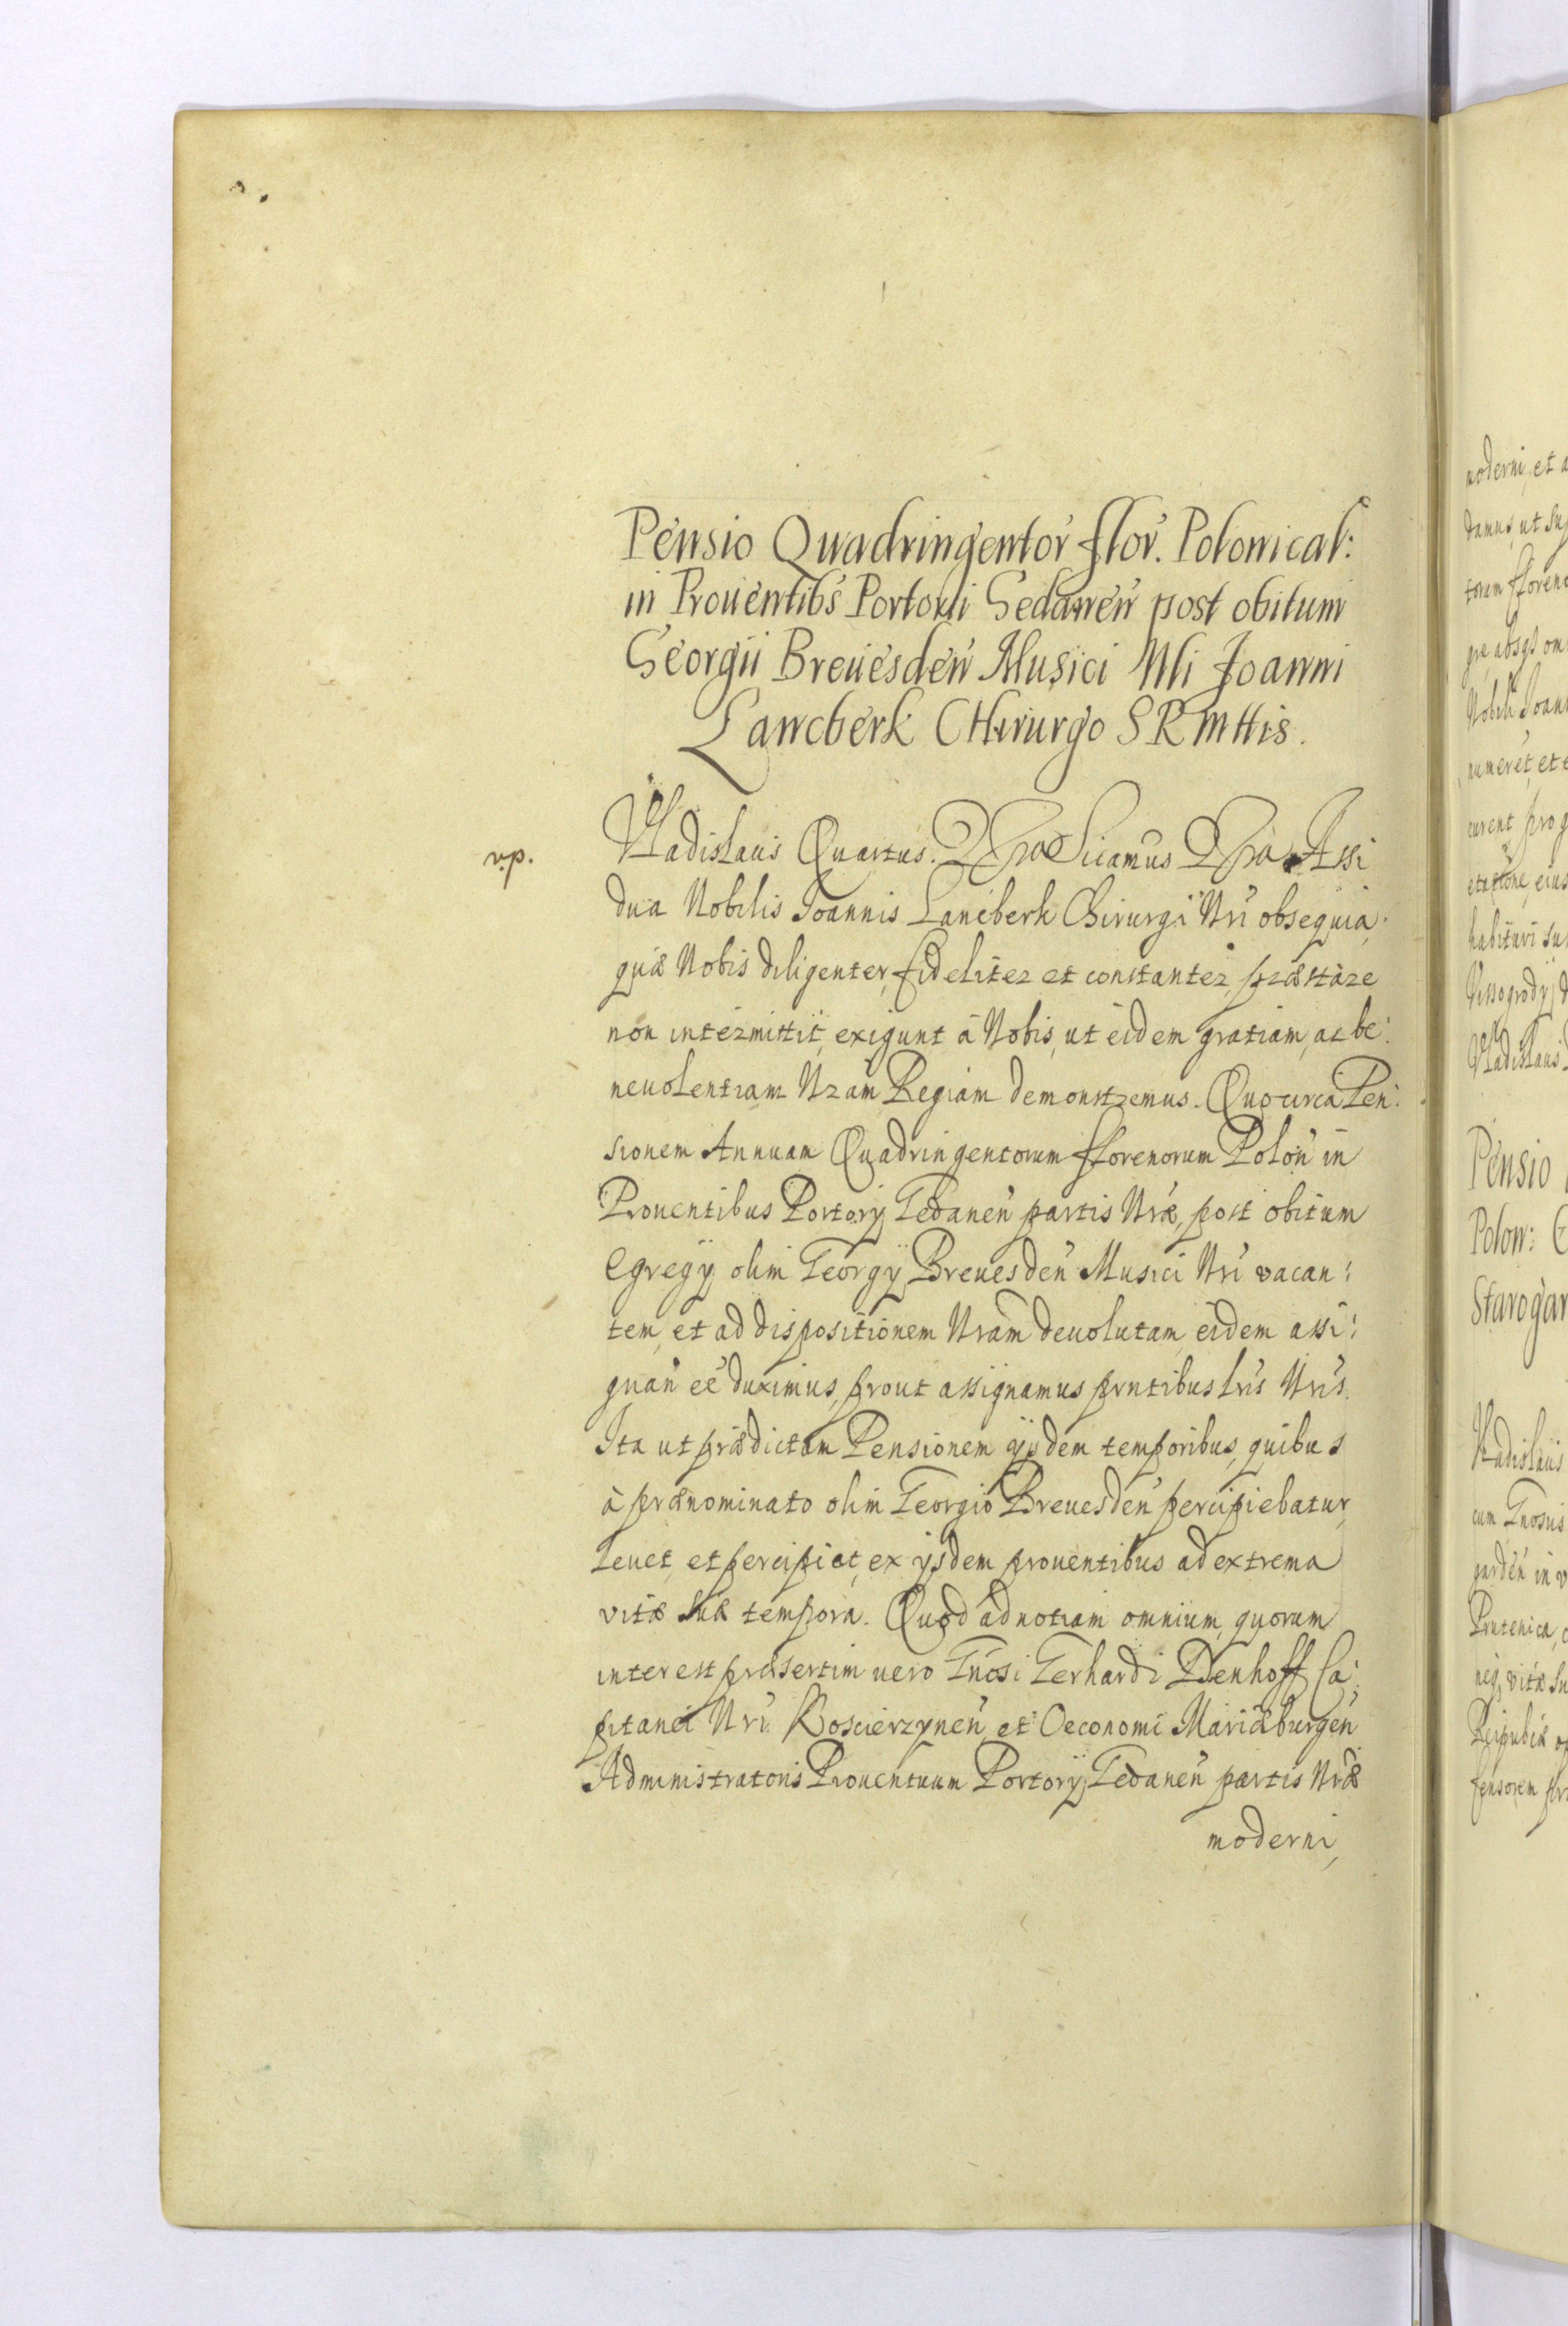 Pensio Quadringentor flor. Polonical:
in Prouentibs Portorii Gedanen post obitum
Georgii Breuesden Musici Nli Joanni
Lancberk CHirurgo S R Mttis.
vp.
Vladislaus Quartus. Sicamus Assi
dua Nobilis Joannis Lancberk Chirurgi Nri obsequia,
quæ Nobis diligenter, fideliter et constanter, præstare
non intermittit, exigunt à Nobis, ut eidem gratiam, ac be:
neuolentiam Nram Regiam demonstremus. Quocirca Pen:
sionem Annuam Quadringentorum fflorenorum Polon in
Prouentibus Portorÿ Gedanen partis Nræ, post obitum
Egregÿ olim Georgÿ Breuesden Musici Nri vacan:
tem, et ad dispositionem Nram deuolutam, eidem assi:
gnan eé duximus, prout assignamus prntibus lris Nris.
Ita ut prædictam Pensionem ÿsdem temporibus, quibus
à prænominato olim Georgio Breuesden percipiebatur,
leuet, et percipiat, ex ÿsdem prouentibus ad extrema
vitæ suæ tempora. Quod ad notiam omnium, quorum
interest præsertim uero Gnosi Gerhardi Denhoff Ca:
pitanei Nri Koscierzynen et Oeconomi Mariæburgen
Administratoris Prouentuum Portorÿ Gedanen partis Nræ
moderni,
moderni, et a
damus, ut sup
torum fforeno
Nobili Joan
numeret, et e
curent, pro
habituri su
Vladislaus
Pensio
Polon:
Starogar
Vladislaus
cum Gnosus
garden in v
Prutenica,
vitæ su